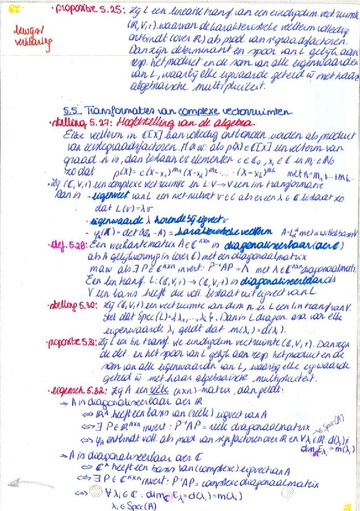 · propositie 5.25: Zij L een lineaire transf van een eindigdim vectruimte
(ℝ,V,+) waarvan de karakteristieke veelterm volledig
ontbindt (over ℝ) als prod van 1egraadsfactoren.
Dan zijn determinant en spoor van L gelijk aan
resp. het product en de som van alle eigenwaarden
van L, waarbij elke eigwaarde geteld w met haar
algebraïsche multipliciteit.
bewijst
verklaring
5.5 Transformaties van complexe vectorruimten
· stelling 5.27: Hoofdstelling van de algebra
Elke veelterm in ℂ[X] kan volledig ontbonden worden als product
van eerstegraadsfactoren. M a w: als p(x) ∈ ℂ[X] een veelterm van
graad n is, dan bestaan er elementen
zodat p(x) = c(x-x₁)^m₁ (x-x₂)^m₂ ... (x-x_k)^m_k
· Zij (ℂ,V,+) een complexe vectruimte en L: V→V een lin transformatie
dan is · eigenvect van L een niet nulvect v ∈ V als er een λ ∈ ℂ bestaat zo
dat L(v) = λv
· eigenwaarde λ horende bij eigvect v
· karakteristieke veelterm
· def. 5.28: Een vierkante matrix A ∈ ℂ^nxn is diagonaliseerbaar (over ℂ)
als A gelijkvormig is (over ℂ) met een diagonaalmatrix
m a w als ∃ P ∈ ℂ^nxn invert: P⁻¹AP = Λ met Λ ∈ ℂ^nxn diagonaalmatrix.
Een lin transf L: (ℂ,V,+) → (ℂ,V,+) is diagonaliseerbaar als
V een basis heeft die voll bestaat uit eigvect van L
· stelling 5.30: Zij (ℂ,V,+) een vect ruimte van dim n en L een lin transf van V.
Stel dat Spec(L) = {λ₁,...,λ_k}. Dan is L diagon. asa voor elke
eigenwaarde λᵢ geldt dat m(λᵢ) = d(λᵢ).
· propositie 5.31: Zij L een lin transf vd eindigdim vectruimte (ℂ,V,+). Dan zijn
de det. en het spoor van L gelijk aan resp. het product en de
som van alle eigenwaarden van L, waarbij elke eigwaarde
geteld w met haar algebraïsche multipliciteit.
· eigensch. 5.32: Zij A een reële (nxn)-matrix, dan geldt:
→ A is diagonaliseerbaar over ℝ
⇔ ℝⁿ heeft een basis van (reële) eigvect van A
⇔ ∃ P ∈ ℝ^nxn invert: P⁻¹AP = reële diagonaalmatrix
→ A is diagonaliseerbaar over ℂ
⇔ ℂⁿ heeft een basis van (complexe) eigvect van A
⇔ ∃ P ∈ ℂ^nxn invert: P⁻¹AP = complexe diagonaalmatrix
⇔ ∀ λᵢ ∈ ℂ: dim_ℂ E_λᵢ = d(λᵢ) = m(λᵢ)
λᵢ ∈ Spec(A)